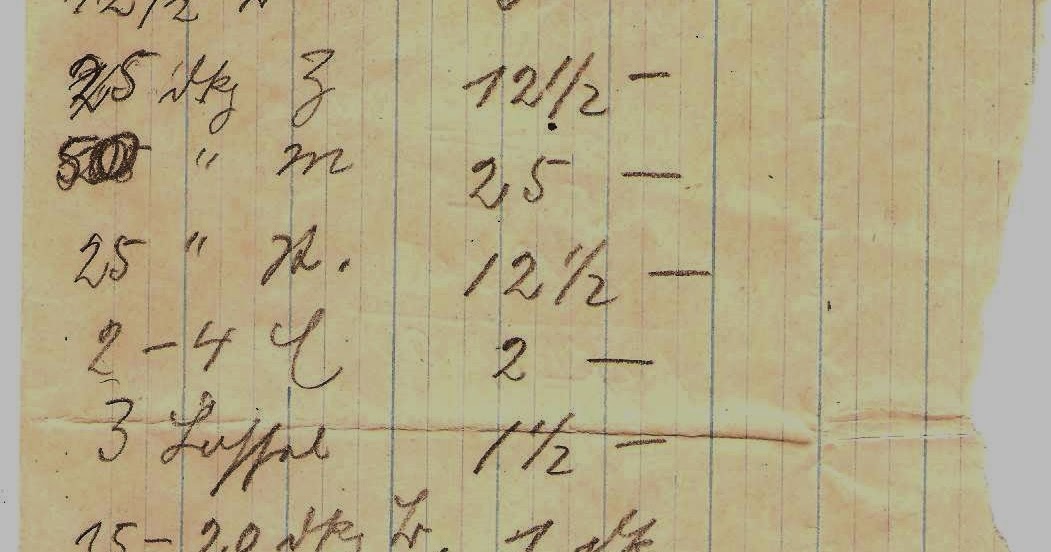 25 dkg Z 12 1/2 —
50 " M 25 —
25 " 12 1/2 —
2 – 4 2 —
3 Löffel 1 1/2 —
15 – 20 dkg 1